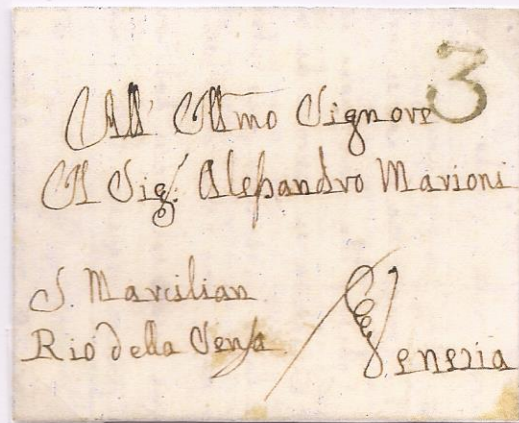 3
All' Illmo Signore
Il Sig.r Alessandro Marioni
S. Marcilian
Rio della Sensa
Venezia